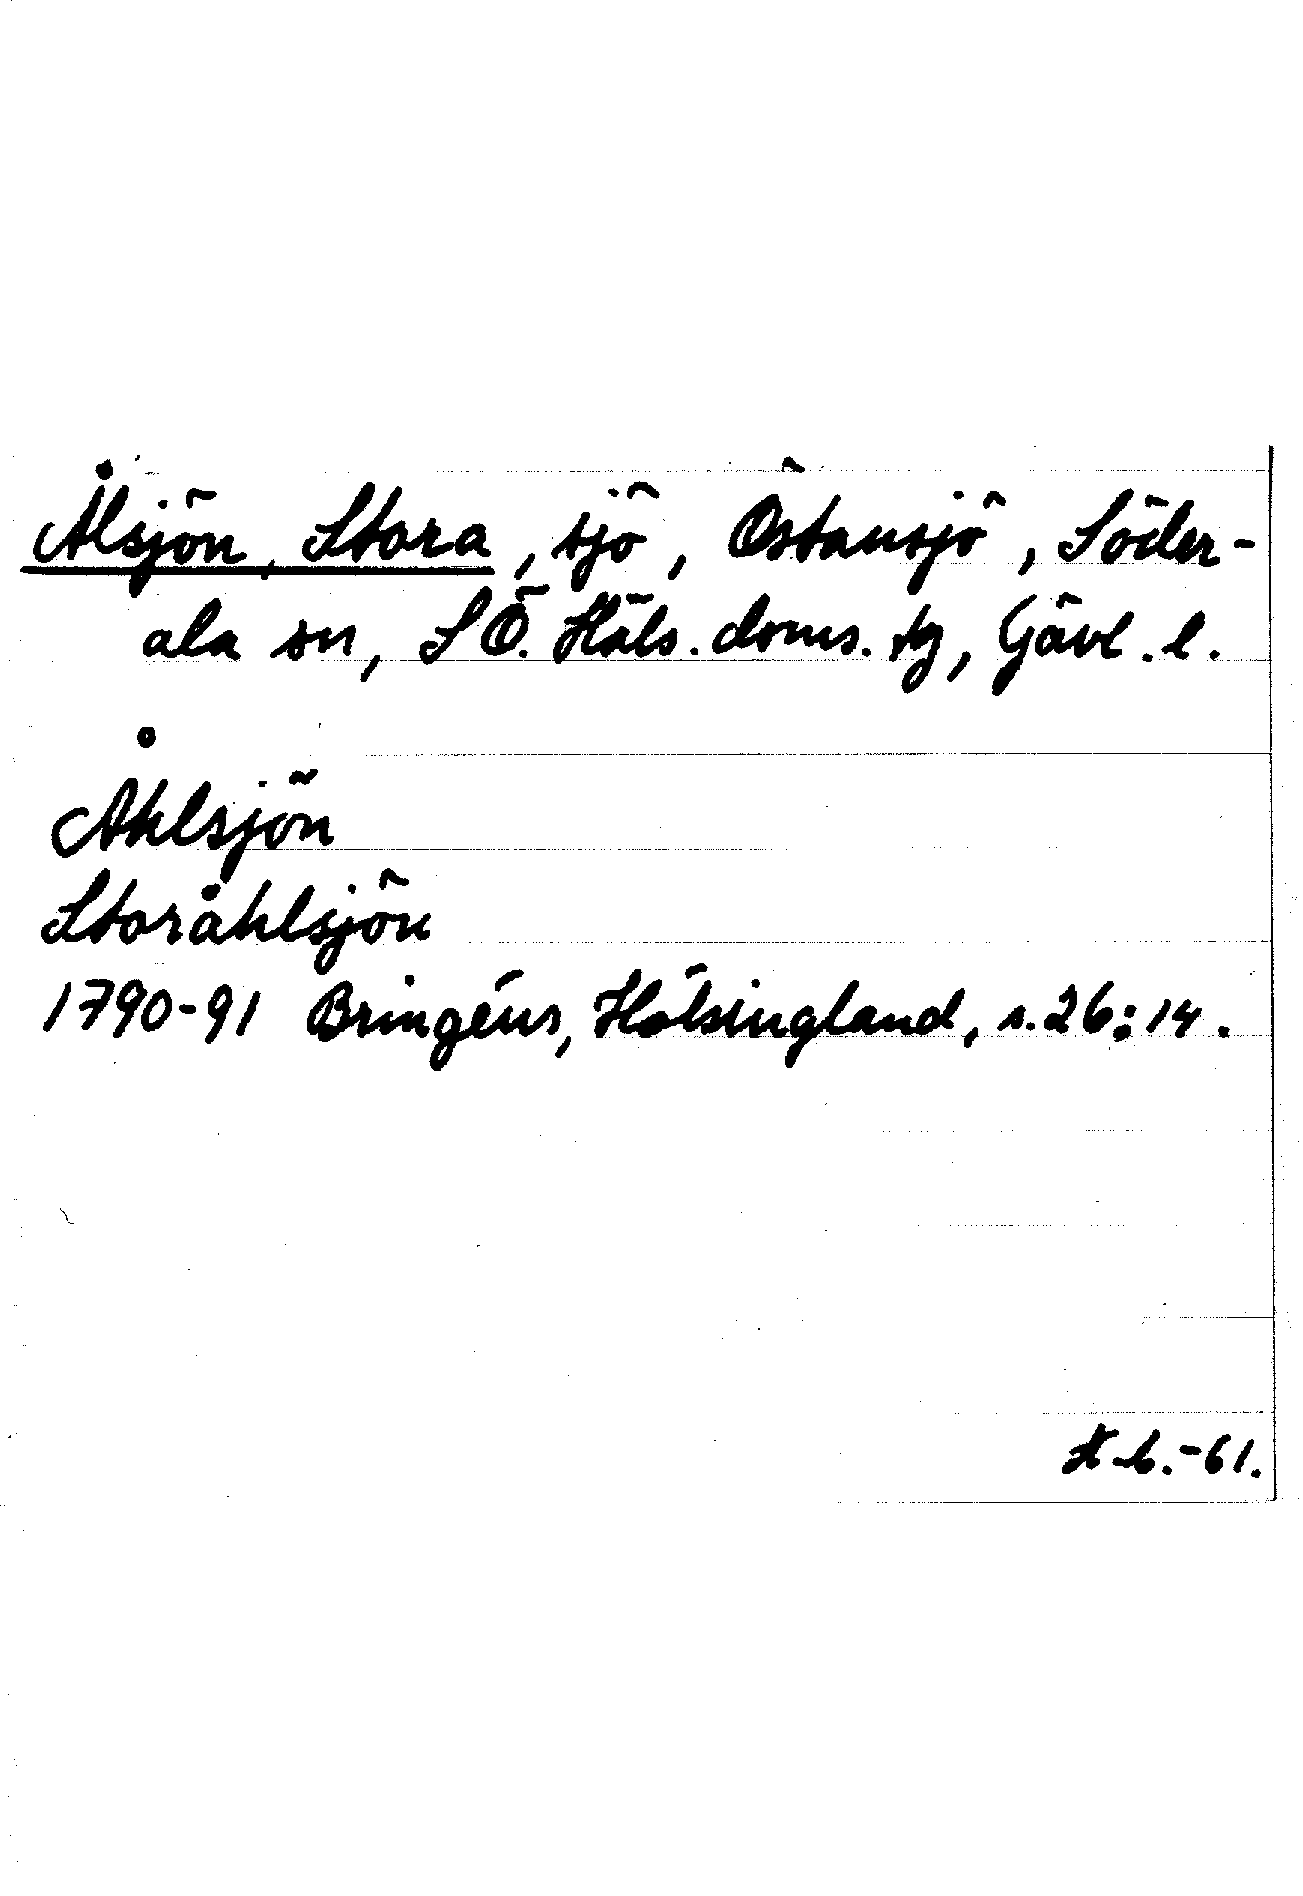 Ålsjön, Stora, sjö, Östansjö, Söder-
ala sn, SÖ. Häls. doms. tg, Gävl. l.
Åhlsjön
Storåhlsjön
1790-91 Bringéus, Hälsingland, s. 26:14.
-61.